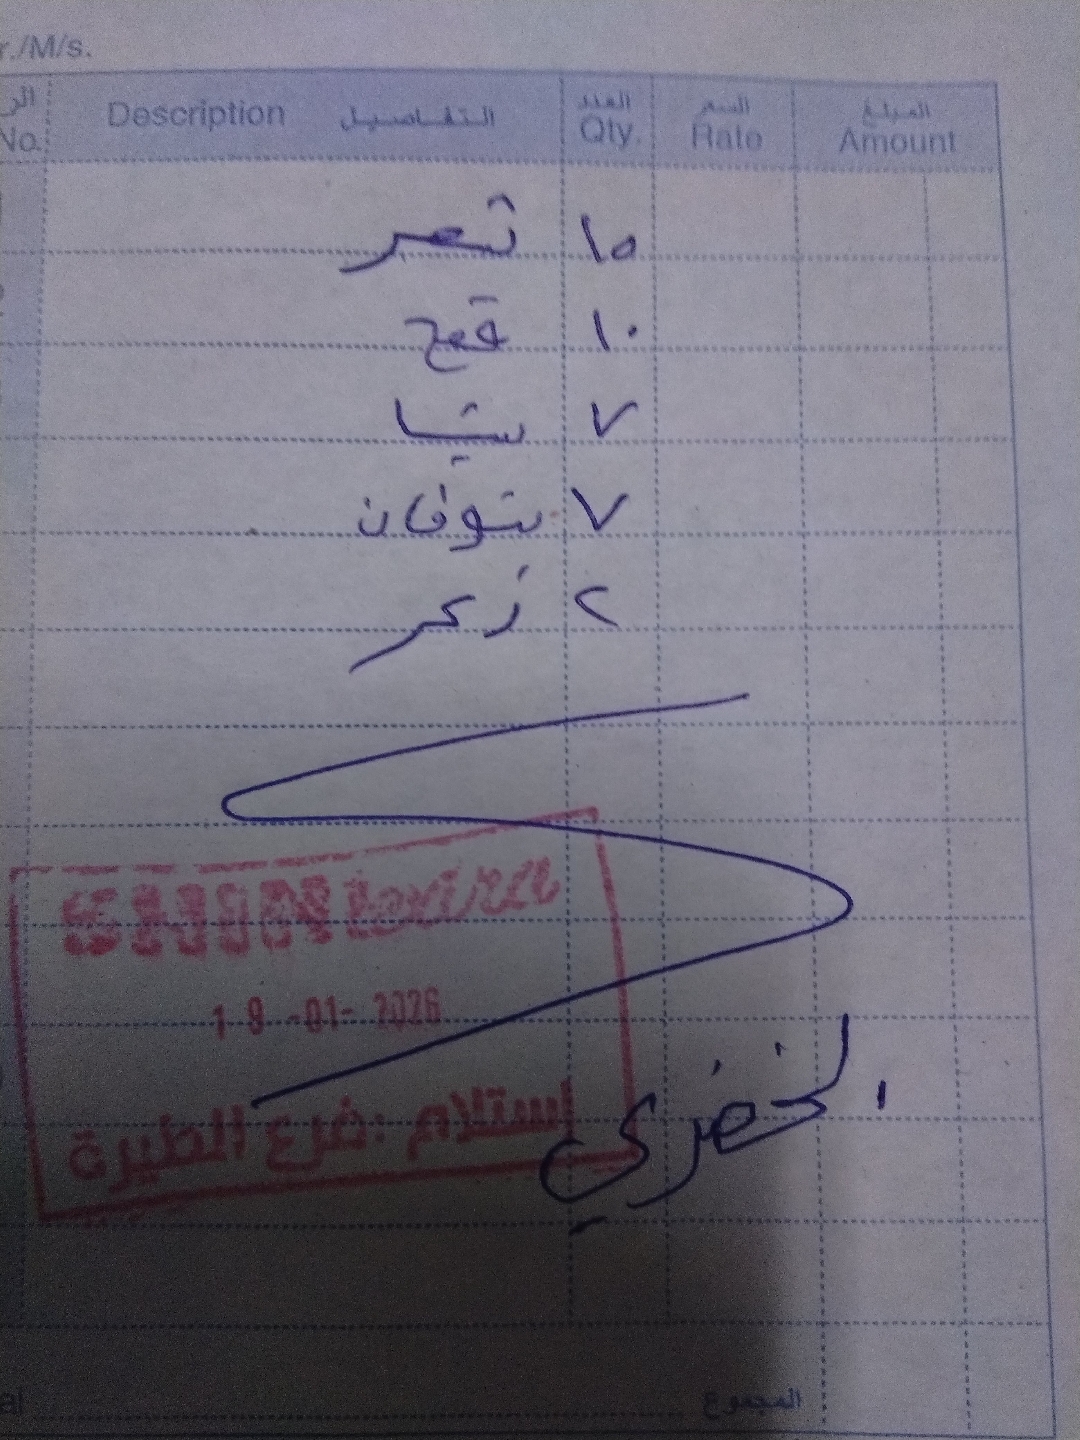 r./M/s.
الر
No.
Description التفاصيل
العدد
Qty.
السعر
Rate
المبلغ
Amount
تمر ١٥
قمح ١٠
شيا ٧
شوفان ٧
زعتر ٢
19-01-2026
استلام : فرع الطيرة
الخضري
al المجموع